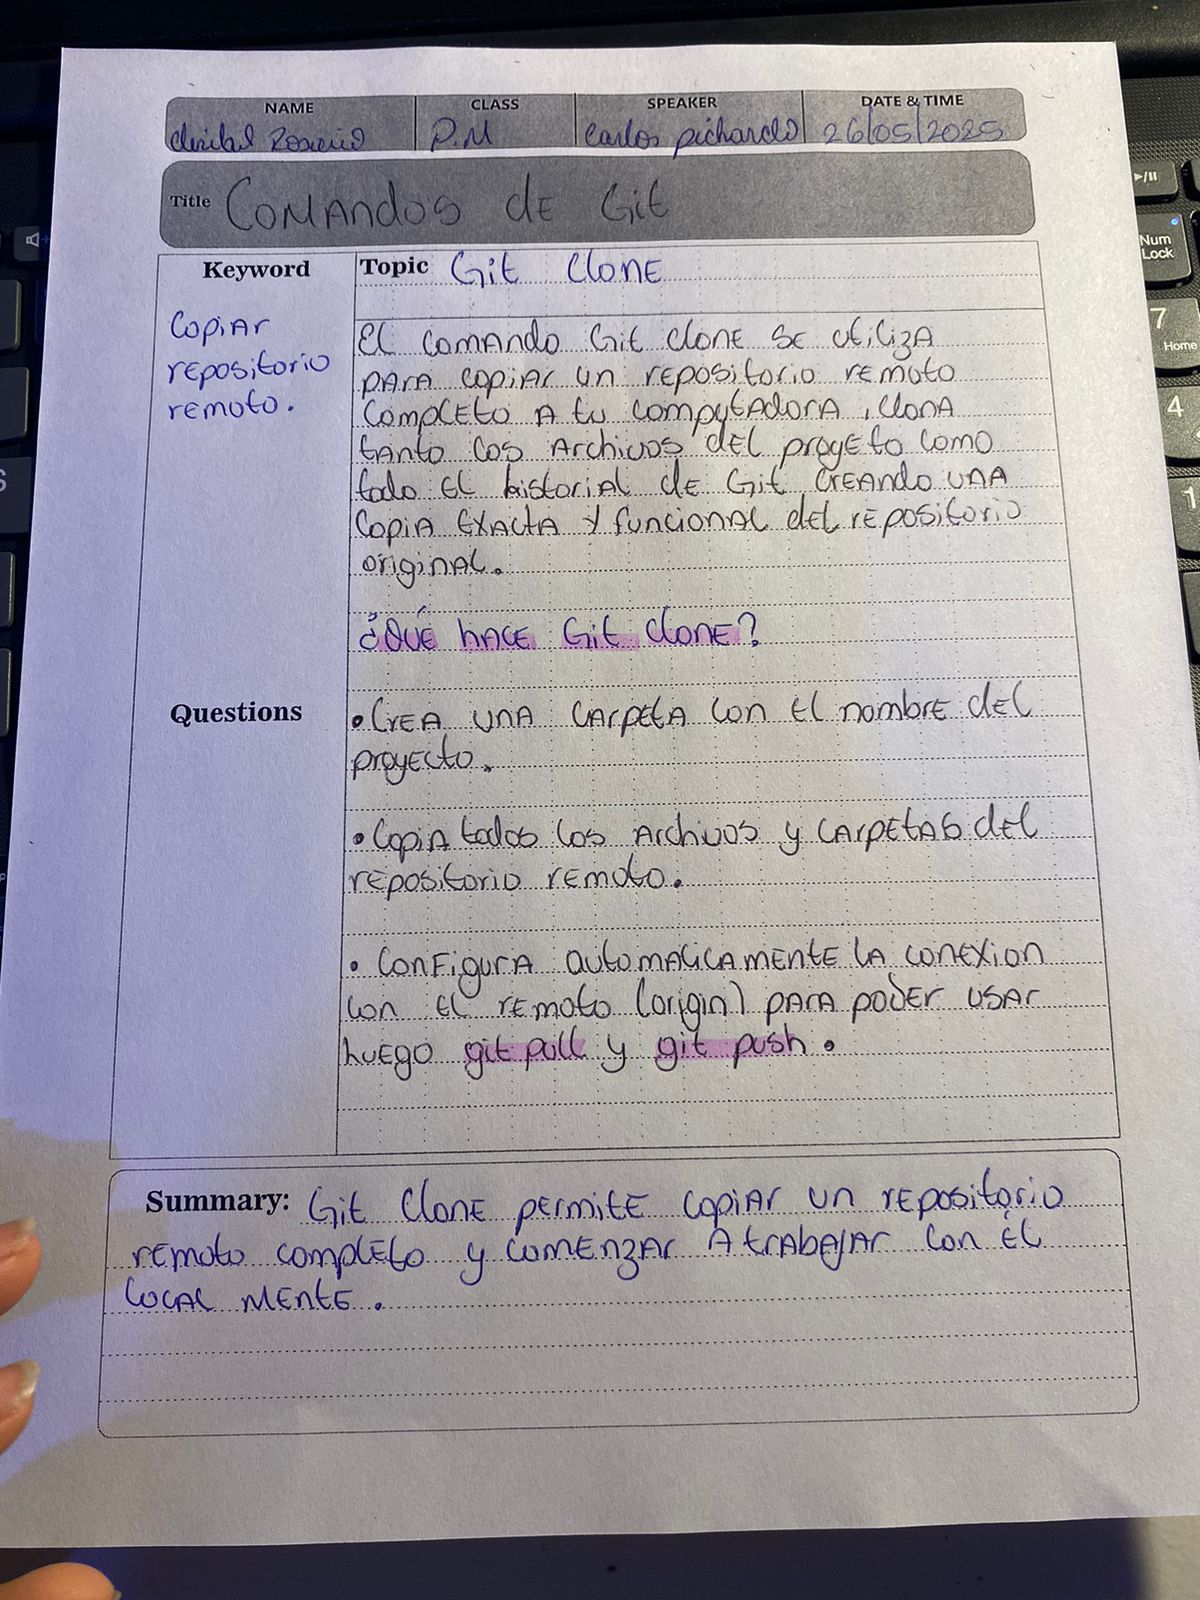 NAME CLASS SPEAKER DATE & TIME
Rosario P.M Carlos pichardo 26/05/2025
Title Comandos de Git
Keyword Topic Git Clone
Copiar
repositorio
remoto.
El comando Git clone se utiliza
para copiar un repositorio remoto
completo a tu computadora, clona
tanto los archivos del proyeto como
todo el historial de Git creando una
copia exacta y funcional del repositorio
original.
¿Qué hace Git clone?
Questions
• Crea una carpeta con el nombre del
proyecto.
• Copia todos los archivos y carpetas del
repositorio remoto.
• Configura automaticamente la conexion
con el remoto (origin) para poder usar
luego git pull y git push.
Summary: Git Clone permite copiar un repositorio
remoto completo y comenzar a trabajar con él
local mente.
Num
Lock
7
Home
4
1